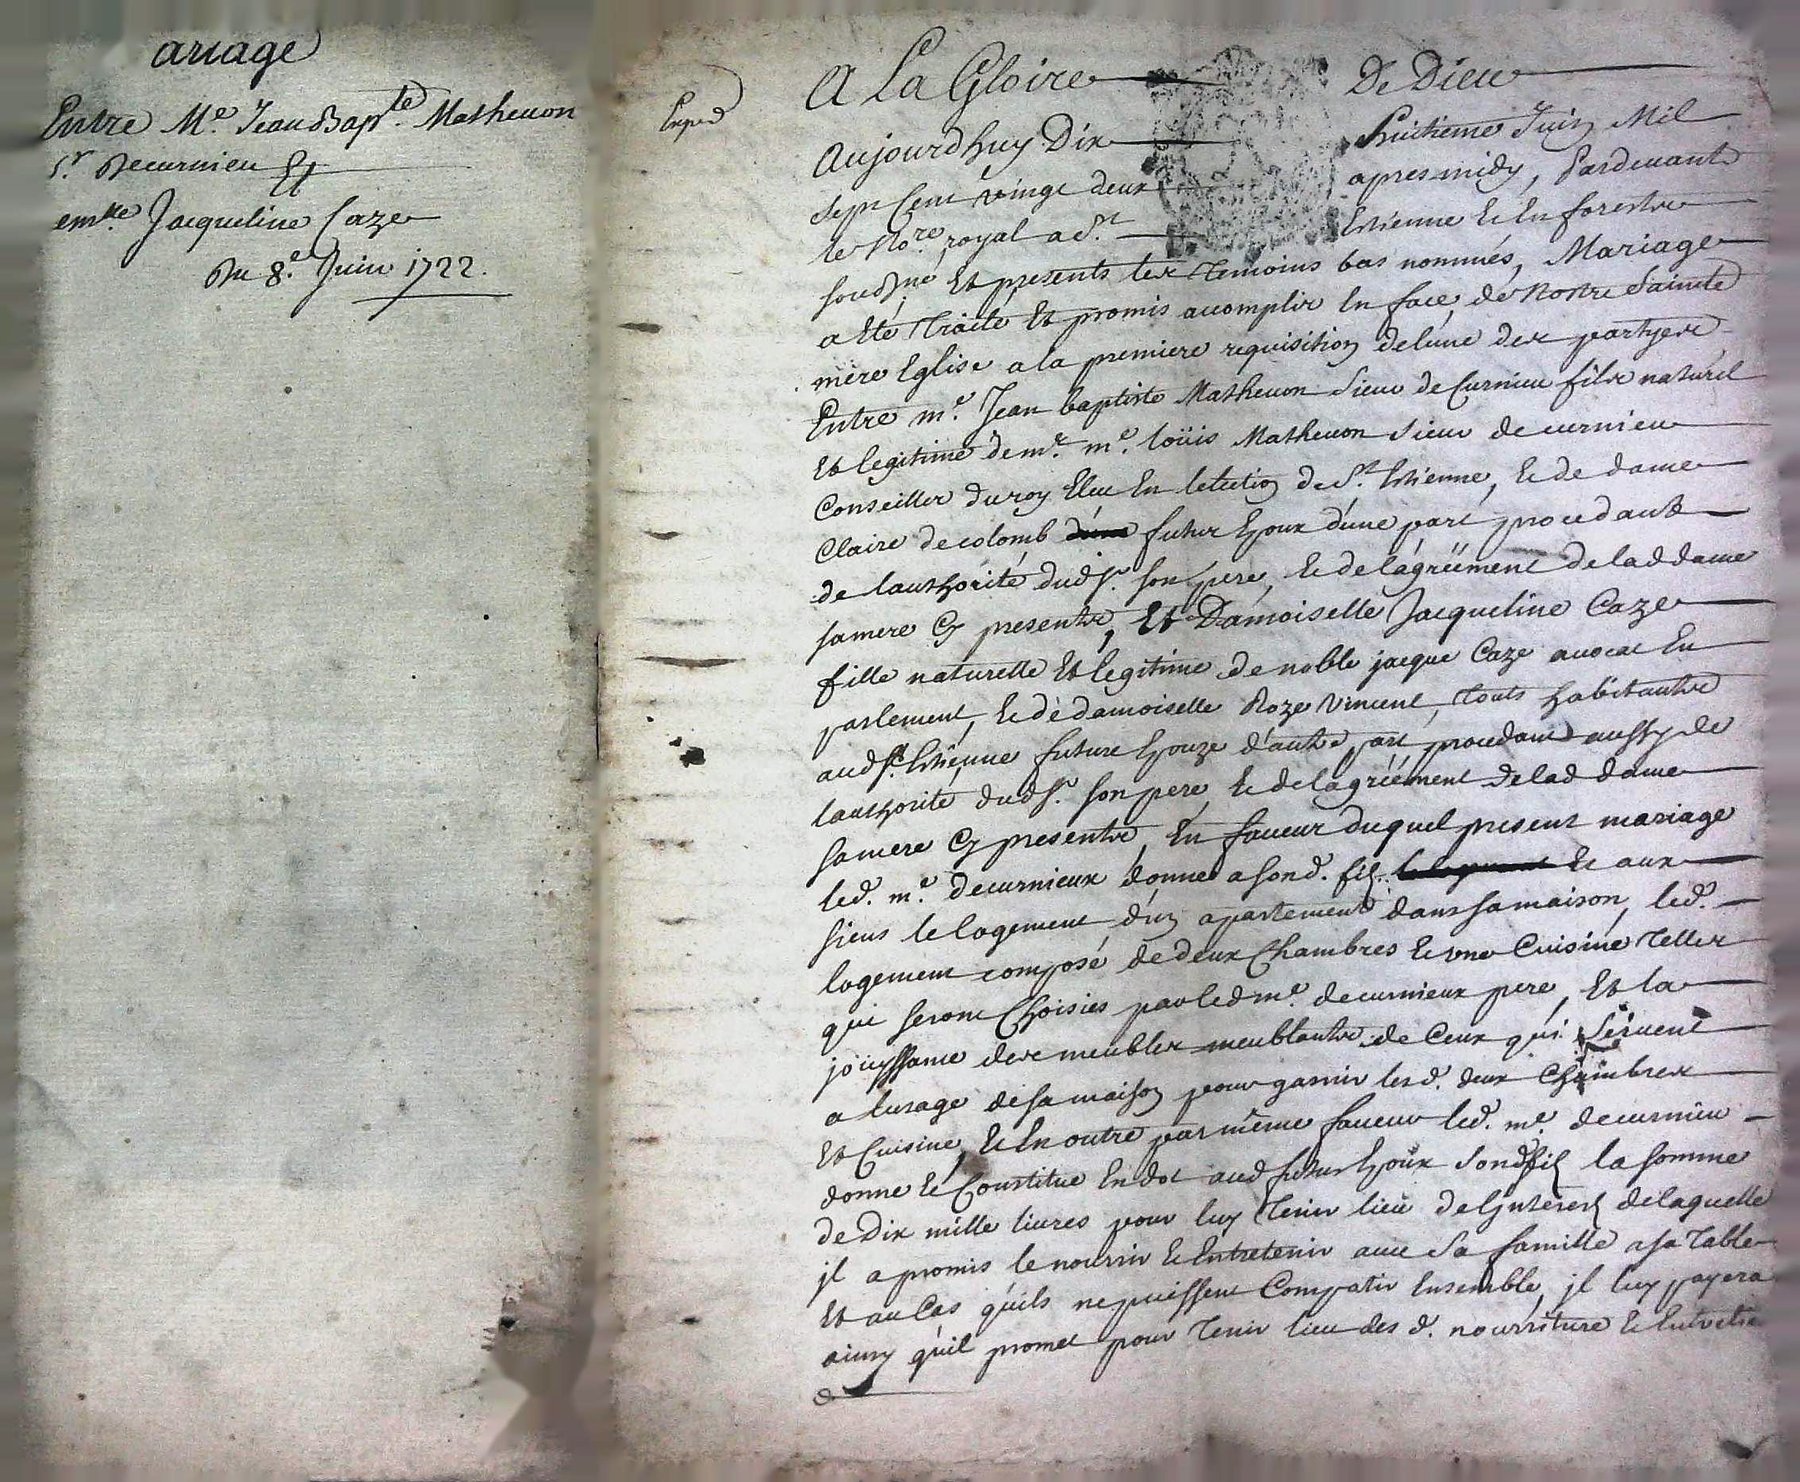 ariage
Entre Me. Jean Bapte. Matheuon
Sr. Decurnieu Et
emlle Jacqueline Caze
Du 8e. Juin 1722.
Exped
A La Gloire De Dieu
Aujourdhuy Dix huitieme Juin Mil
sept Cent vingt deux apres midy, Pardeuant
le Nore. royal a St. Estienne Et En forestz
soudsne Et presents les Temoins bas nommés, Mariage
a Eté Traité Et promis acomplir En face de Nostre Sainte
mère Eglise a la premiere requisition delune des partyes
Entre me. Jean baptiste Matheuon Sieur de Curnieu fils naturel
Et legitime de mr. me. loüis Matheuon Sieur decurnieu
Conseiller du roy Eleu En letection de St. Estienne, Et de dame
Claire decolomb futur Epoux d'une part procedant
de lauthorité dud sr. son pere, Et de lágréément delad dame
samere Cy presente, Et Damoiselle Jacqueline Caze
fille naturelle Et legitime de noble jacque Caze auocat En
parlement, Et de damoiselle Roze Vincent, touts habitants
aud St. Estienne future Epouze d'autre part procedant aussy de
lauthorité dud sr. son pere Et delagréément delad dame
samere Cy presente, En faueur duquel present mariage
led. me. decurnieux donne a sond. fils Et aux
siens le logement d'un apartement dans sa maison, led.
logement composé de deux Chambres Et une Cuisine Telles
qui seront Choisies par led me. decurnieux pere, Et la
joüyssance des meubles meublants de Ceux qui seruent
a lusage desa maison pour garnir lesd. deux Chambres
Et Cuisine, Et En outre par même faueur led. me. decurnieu
donne Et Constitue En dot aud futur Epoux sond fils la somme
de Dix mille liures pour luy Tenir lieu de l'Interest delaquelle
jl a promis le nourrir Et Entretenir auec Sa famille asa Table
Et au Cas qu'ils ne puissent Compatir Ensemble, jl luy payera
ainsy qu'il promet pour Tenir lieu des d. nourriture Et Entretie